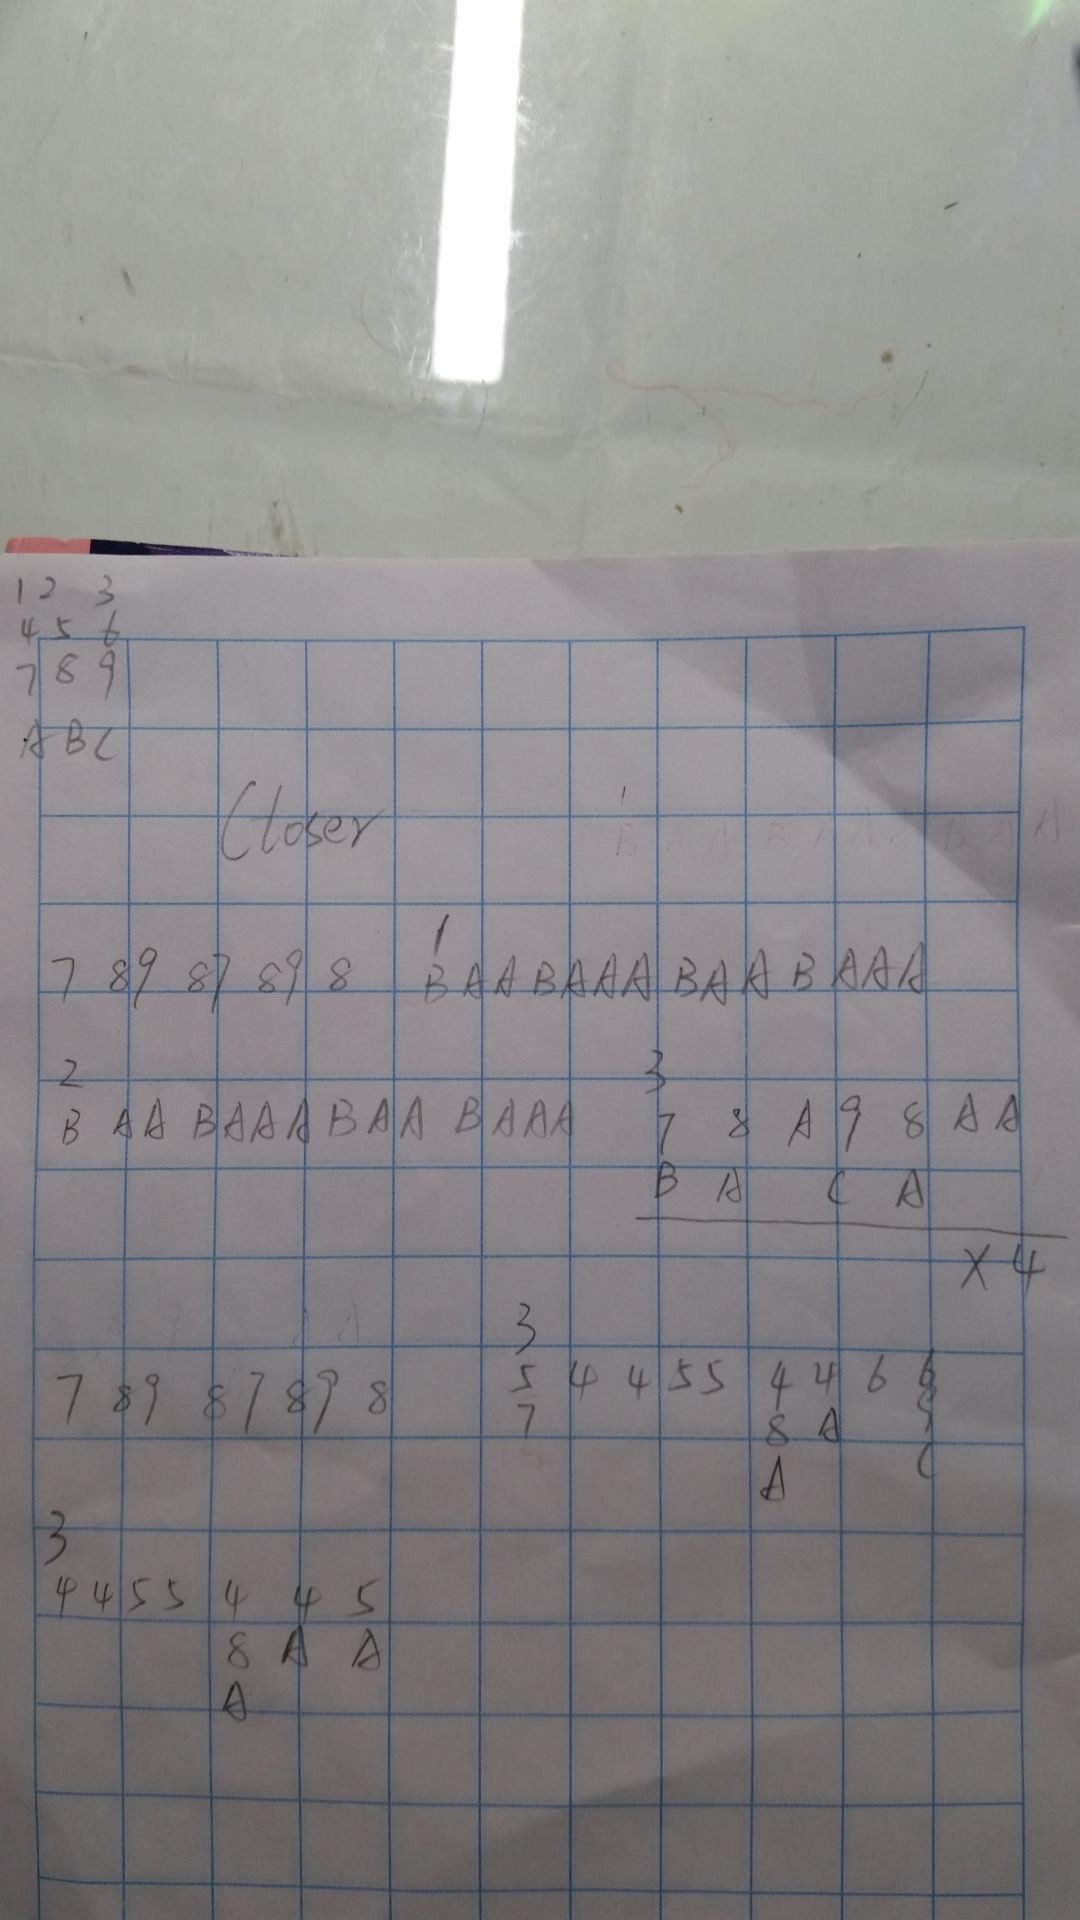 1 2 3
4 5 6
7 8 9
A B C
Closer
1
7 89 87 89 8 B A A B A A A B A A B A A A
2 3
B A A B A A A B A A B A A A 7 8 A 9 8 A A
B A C A
X 4
3
7 89 87 89 8 5 4 4 5 5 4 4 6 6
7 8 A
A C
3
4 4 5 5 4 4 5
8 A A
A